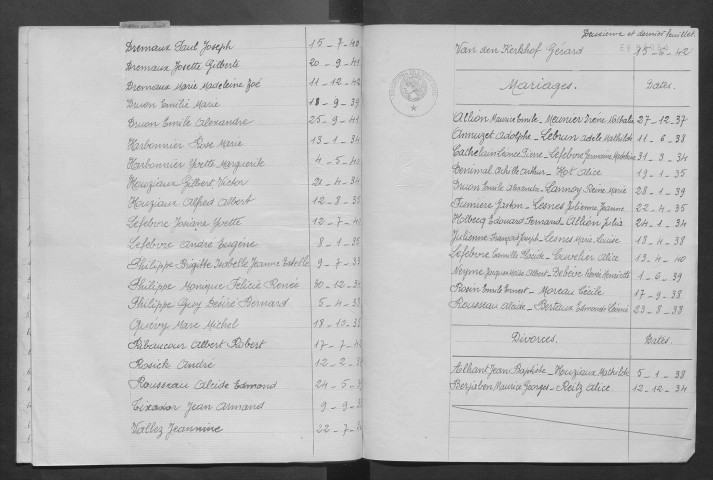 Dremaux Paul Joseph 15-7-40
Dremaux Josette Gilberte 20-9-41
Dremaux Marie Madeleine Zoé 11-12-42
Druon Emilie Marie 18-9-39
Druon Emile Alexandre 25-9-41
Harbonnier Rose Marie 13-1-34
Harbonnier Yvette Marguerite 4-5-40
Houziaux Gilbert Victor 21-4-34
Houziaux Alfred Albert 12-8-35
Lefebvre Josiane Yvette 12-7-40
Lefebvre André Eugène 8-1-35
Philippe Brigitte Isabelle Jeanne Estelle 9-7-33
Philippe Monique Félicie Renée 30-12-35
Philippe Guy Désiré Bernard 5-4-38
Quévy Marc Michel 18-10-38
Ribaucour Albert Robert 17-7-40
Rosick André 12-2-36
Rousseau Alcide Edmond 24-5-3
Tixador Jean Armand 9-9-3
Vallez Jeannine 22-7-3
Deuxième et dernier feuillet.
Van den Kerkhof Gérard 15-6-42
Mariages. Dates.
Allion Maurice Emile - Meunier Irène Nathalie 27-12-37
Annuzet Adolphe - Lebrun Adèle Mathilde 11-6-38
Cathelain Léonce Pierre - Lefebvre Germaine Madeleine 31-3-34
Denimal Achille Arthur - Hot Alice 19-1-35
Druon Emile Alexandre - Lannoy Reine Marie 28-1-39
Fremiere Gaston - Lesnes Julienne Jeanne 22-4-35
Holbecq Edouard Fernand - Allion Julia 24-1-34
Julienne François Joseph - Lesnes Marie Louise 18-4-38
Lefebvre Camille Placide - Cuvelier Alice 13-4-40
Jacques Albert - Henriette 1-6-39
Rosin Emile Ernest - Moreau Cécile 17-9-38
Rousseau Alcide - Berteaux Edmonde 23-8-38
Divorces. Dates.
Alliant Jean Baptiste - Houziaux Mathilde 5-1-38
Maurice Georges - Reitz Alice 12-12-34